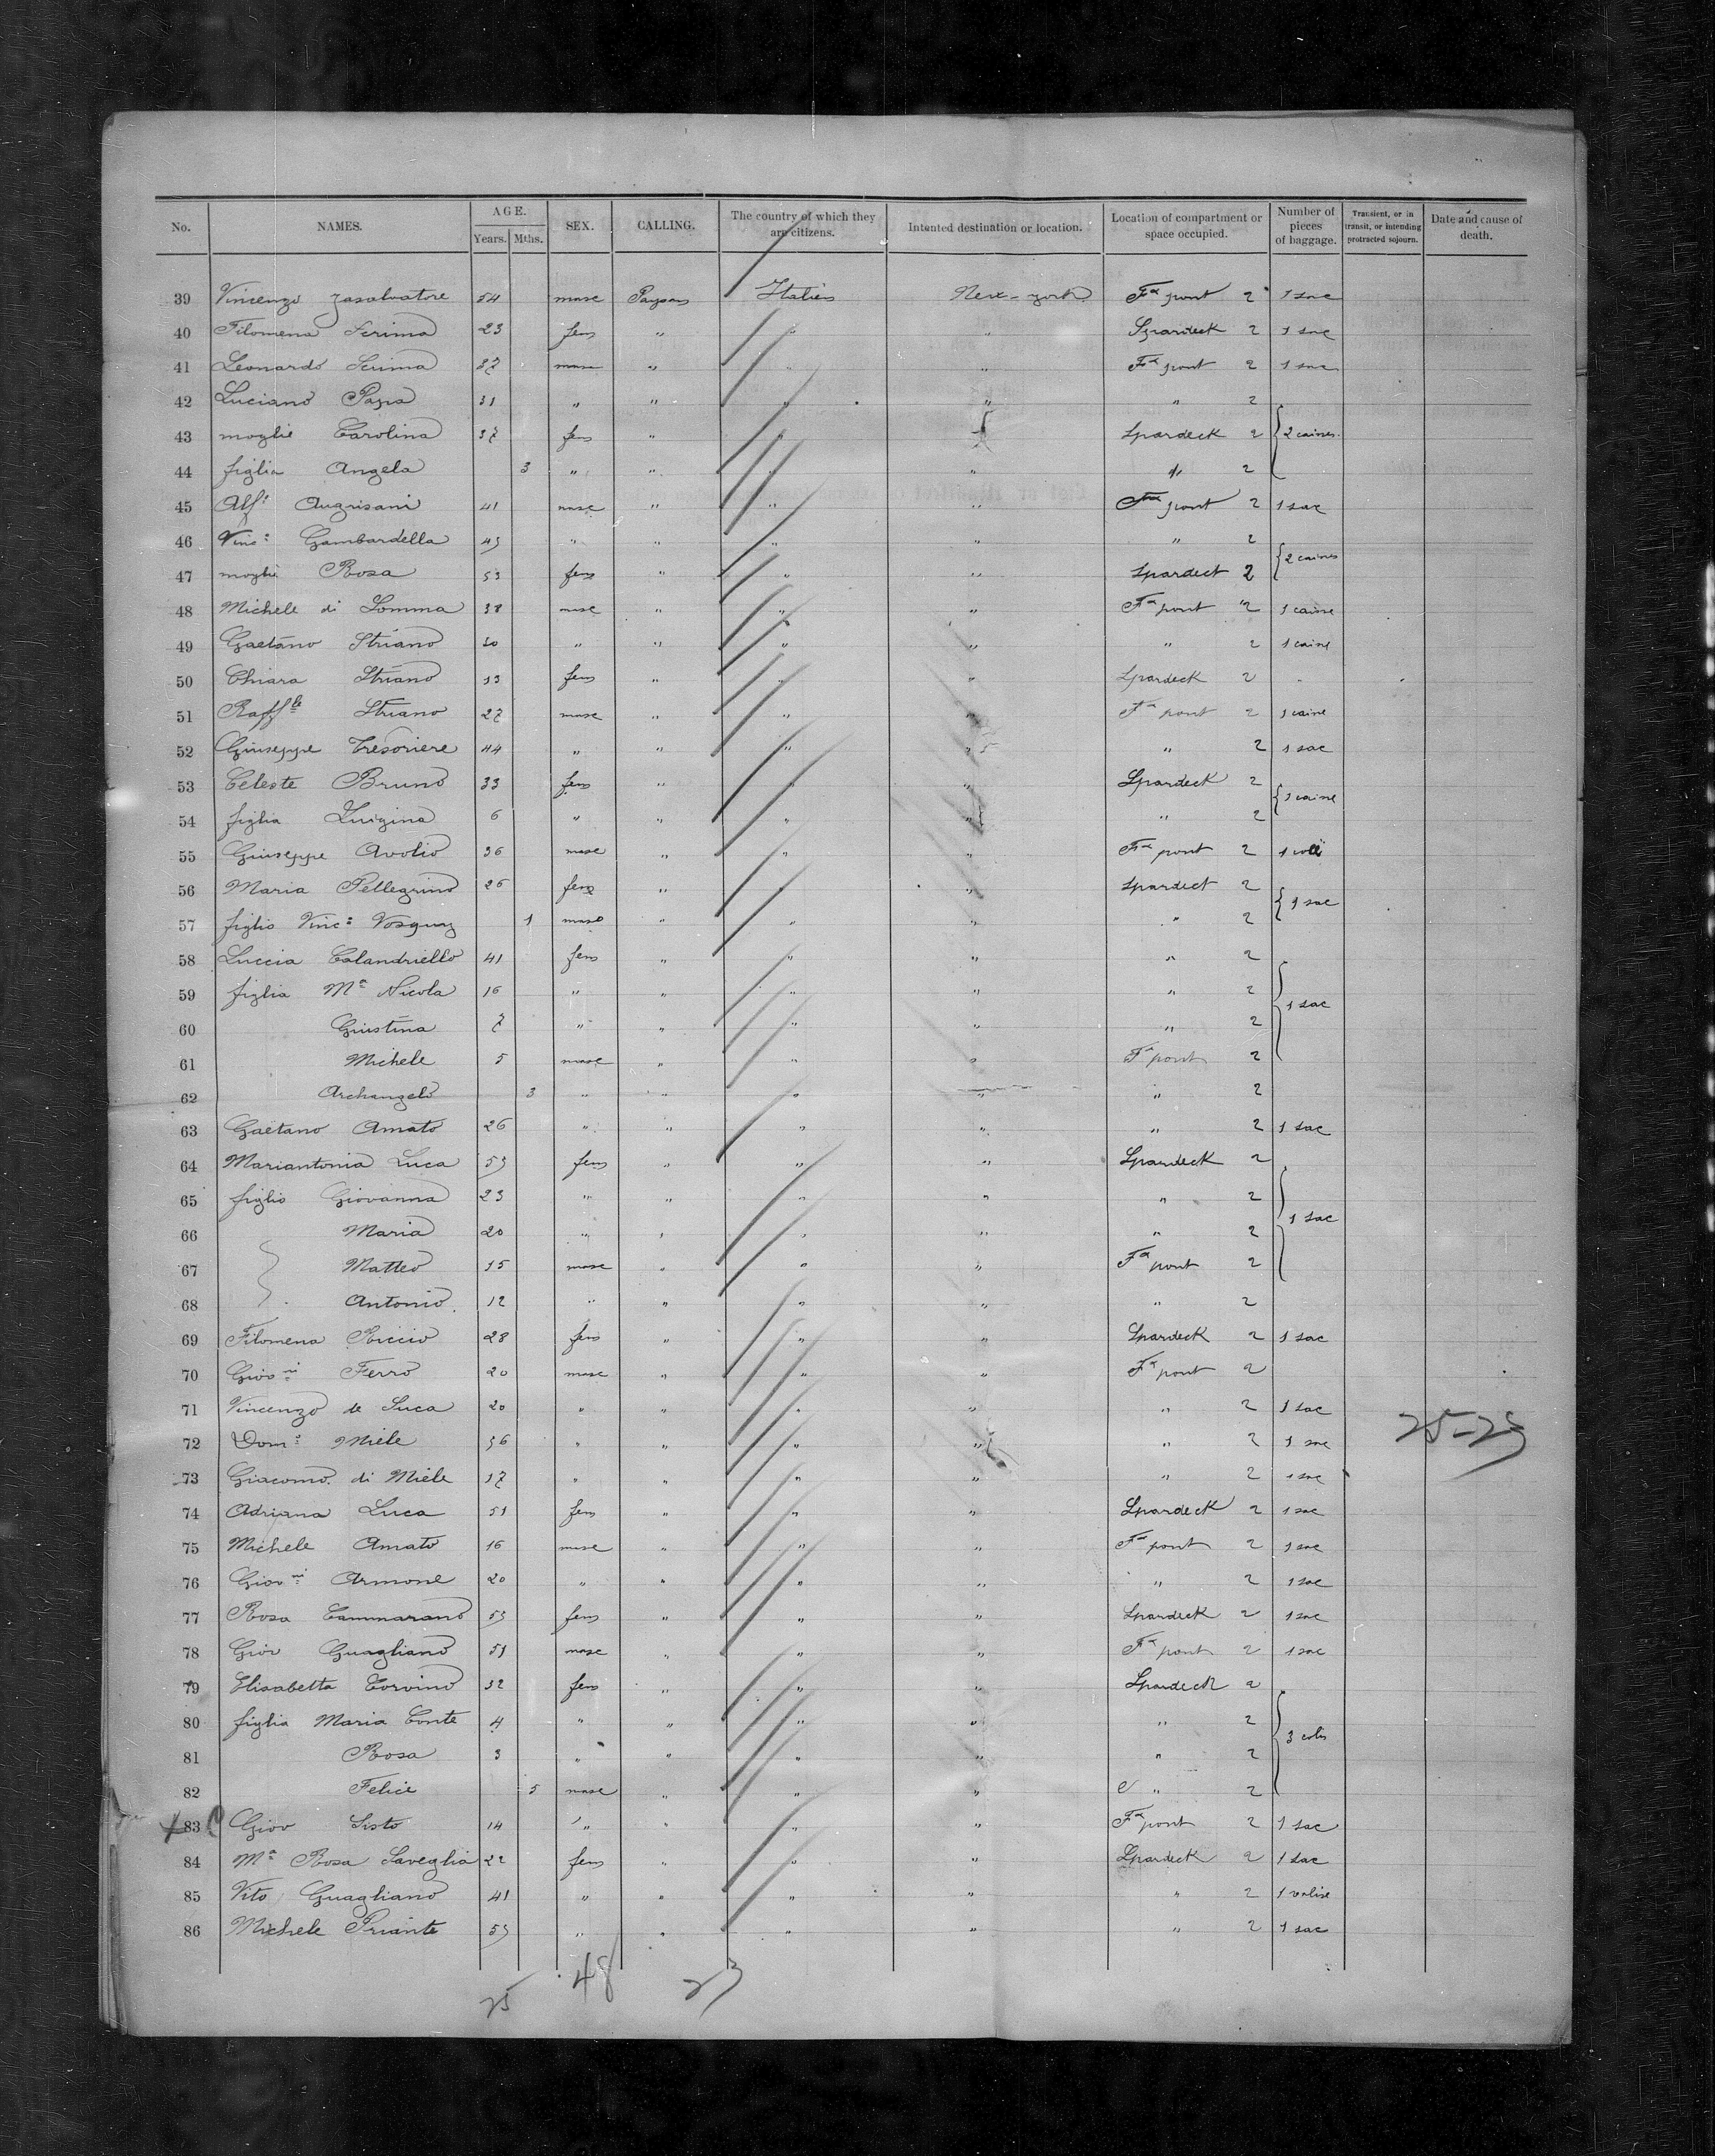 No. NAMES. AGE. Years. Mths. SEX. CALLING. The country of which they are citizens. Intented destination or location. Location of compartment or space occupied. Number of pieces of baggage. Transient, or in transit, or intending protracted sojourn. Date and cause of death.
39 Vincenzo Zasalvatore 54 masc Paysan Italien New-york Fx pont 2 1 sac
40 Filomena Scrima 23 fem " " " Spardeck 2 1 sac
41 Leonardo Scrima 37 masc " " " Fx pont 2 1 sac
42 Luciano Papa 31 " " " " " 2
43 moglie Carolina 37 fem " " Spardeck 2 2 caisses
44 figlia Angela 3 " " " " " 2
45 Alfo Augrisani 41 masc " " " pont 2 1 sac
46 Vinco Gambardella 45 " " " " " 2 2 caisses
47 moglie Rosa 53 fem " " " Spardeck 2
48 Michele di Somma 38 masc " " " Fx pont 2 1 caisse
49 Gaetano Striano 20 " " " " " 2 1 caisse
50 Chiara Striano 13 fem " " " Spardeck 2
51 Raffle Striano 27 masc " " " Fx pont 2 1 caisse
52 Giuseppe Tresoriere 44 " " " " " 2 1 sac
53 Celeste Bruno 33 fem " " " Spardeck 2 1 caisse
54 figlia Luigina 6 " " " " " 2
55 Giuseppe Avolio 36 masc " " " Fx pont 2 1
56 Maria Pellegrino 26 fem " " " Spardeck 2 1 sac
57 figlio Vinco 1 masc " " " " 2
58 Luccia Calandriello 41 fem " " " " 2
59 figlia Ma Nicola 16 " " " " " 2 1 sac
60 Giustina 7 " " " " " 2
61 Michele 5 masc " " " Fx pont 2
62 Archangelo 3 " " " " " 2
63 Gaetano Amato 26 " " " " " 2 1 sac
64 Mariantonia Luca 55 fem " " " Spardeck 2
65 figlio Giovanna 23 " " " " " 2 1 sac
66 Maria 20 " " " " " 2
67 Matteo 15 masc " " " Fx pont 2
68 Antonio 12 " " " " " 2
69 Filomena Riccio 28 fem " " " Spardeck 2 1 sac
70 Giovni Ferro 20 masc " " " Fx pont 2
71 Vincenzo de Luca 20 " " " " " 2 1 sac
72 Domo Miele 36 " " " " " 2 1 sac 25-23
73 Giacomo di Miele 17 " " " " " 2 1 sac
74 Adriana Luca 51 fem " " " Spardeck 2 1 sac
75 Michele Amato 16 masc " " " Fx pont 2 1 sac
76 Giovni Armone 20 " " " " " 2 1 sac
77 Rosa Cammarano 55 fem " " " Spardeck 2 1 sac
78 Giov Guagliano 51 masc " " " Fx pont 2 1 sac
79 Elisabetta Corvino 32 fem " " " Spardeck 2
80 figlia Maria Conte 4 " " " " " 2 3 colis
81 Rosa 3 " " " " " 2
82 Felice 5 masc " " " " 2
83 Giov Sisto 14 " " " " Fx pont 2 1 sac
84 Ma Rosa Saveglia 22 fem " " " Spardeck 2 1 sac
85 Vito Guagliano 41 " " " " " 2 1 valise
86 Michele Priante 55 " " " " " 2 1 sac
25 48 23